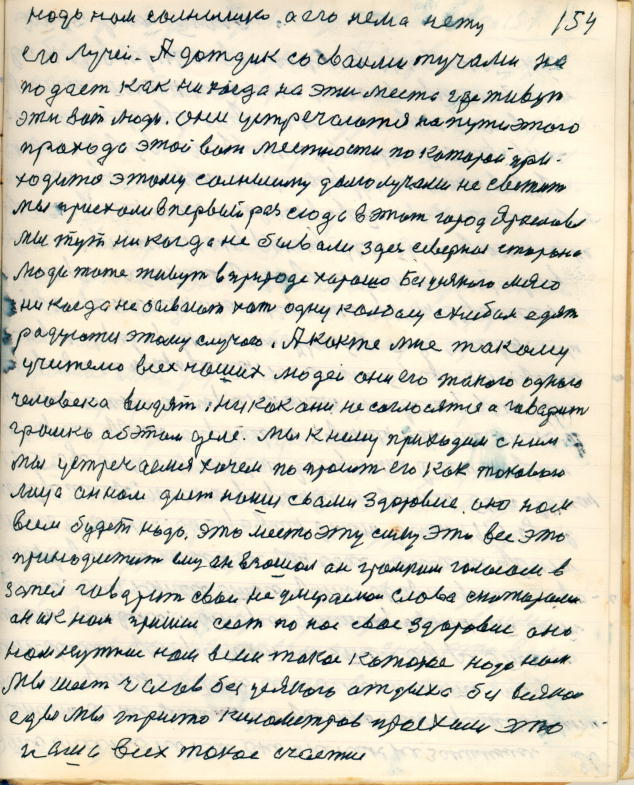 надь нам солнышко а его нема нету 154
его лучей. А дождик со своими тучами на
подает как никогда на эти места где живут
эти вот люди. они устречаются на пути этого
прохода этой вот местности по которой при-
ходится этому солнышку до лучами не светит
мы приехали впервый раз сюда в этот город Ярославль
мы тут никогда не бывали здес северная сторона
люди тоже живут в природе хорошо Без усякого мясо
никогда не бывают хоть одну колбасу с хлебом едят
радуются этому случаю. А как же мне такому
учителю всех наших людей они его такого одного
человека видят, ни как они не соглосятся а гаварит
громко об этом деле. Мы к нему приходим с ним
мы устречаемся хочем попросит его как таковою
лица он нам даст наши своими здоровие. оно нам
всем будет надь. это место эту силу это все это
принодлежит ему он взошол он громким голосом в
заяел гаварит свои не умераемои слова с которыми
они к нам пришли сюда по нас свае здоровие оно
нам нужное нам всем такое которое надо нам
Мы шест часов без усякого отдыха без всякой
еды мы триста километров проехали это
наша всех такое счастие